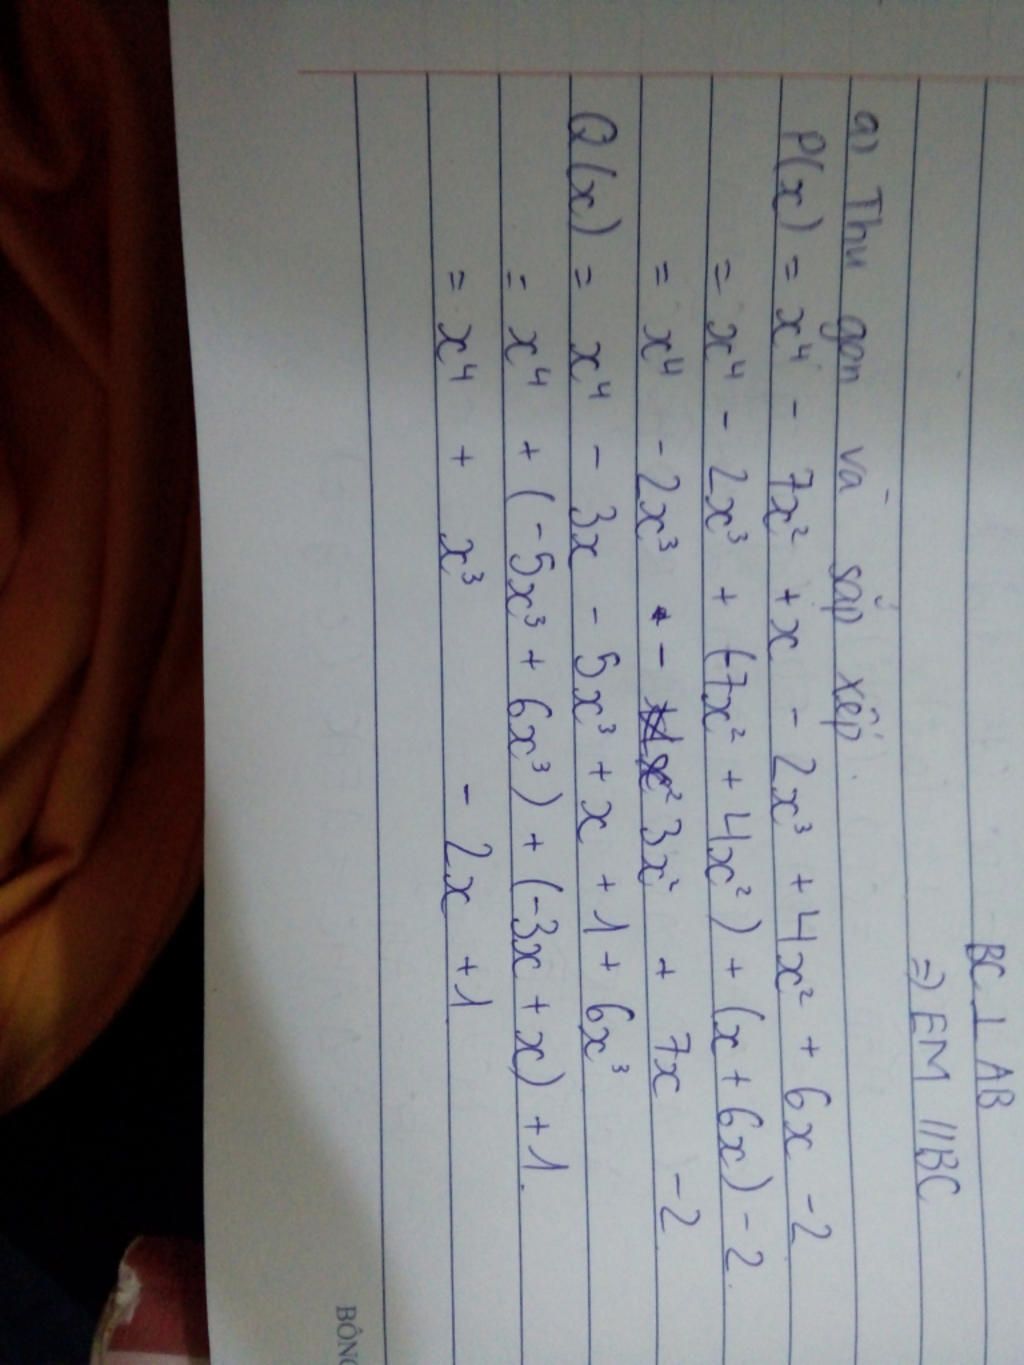 BC ⊥ AB
=> EM // BC
a) Thu gọn và sắp xếp.
P(x) = x⁴ - 7x² + x - 2x³ + 4x² + 6x - 2
= x⁴ - 2x³ + (-7x² + 4x²) + (x + 6x) - 2.
= x⁴ - 2x³ - 3x² + 7x - 2
Q(x) = x⁴ - 3x - 5x³ + x + 1 + 6x³
= x⁴ + (-5x³ + 6x³) + (-3x + x) + 1.
= x⁴ + x³ - 2x + 1